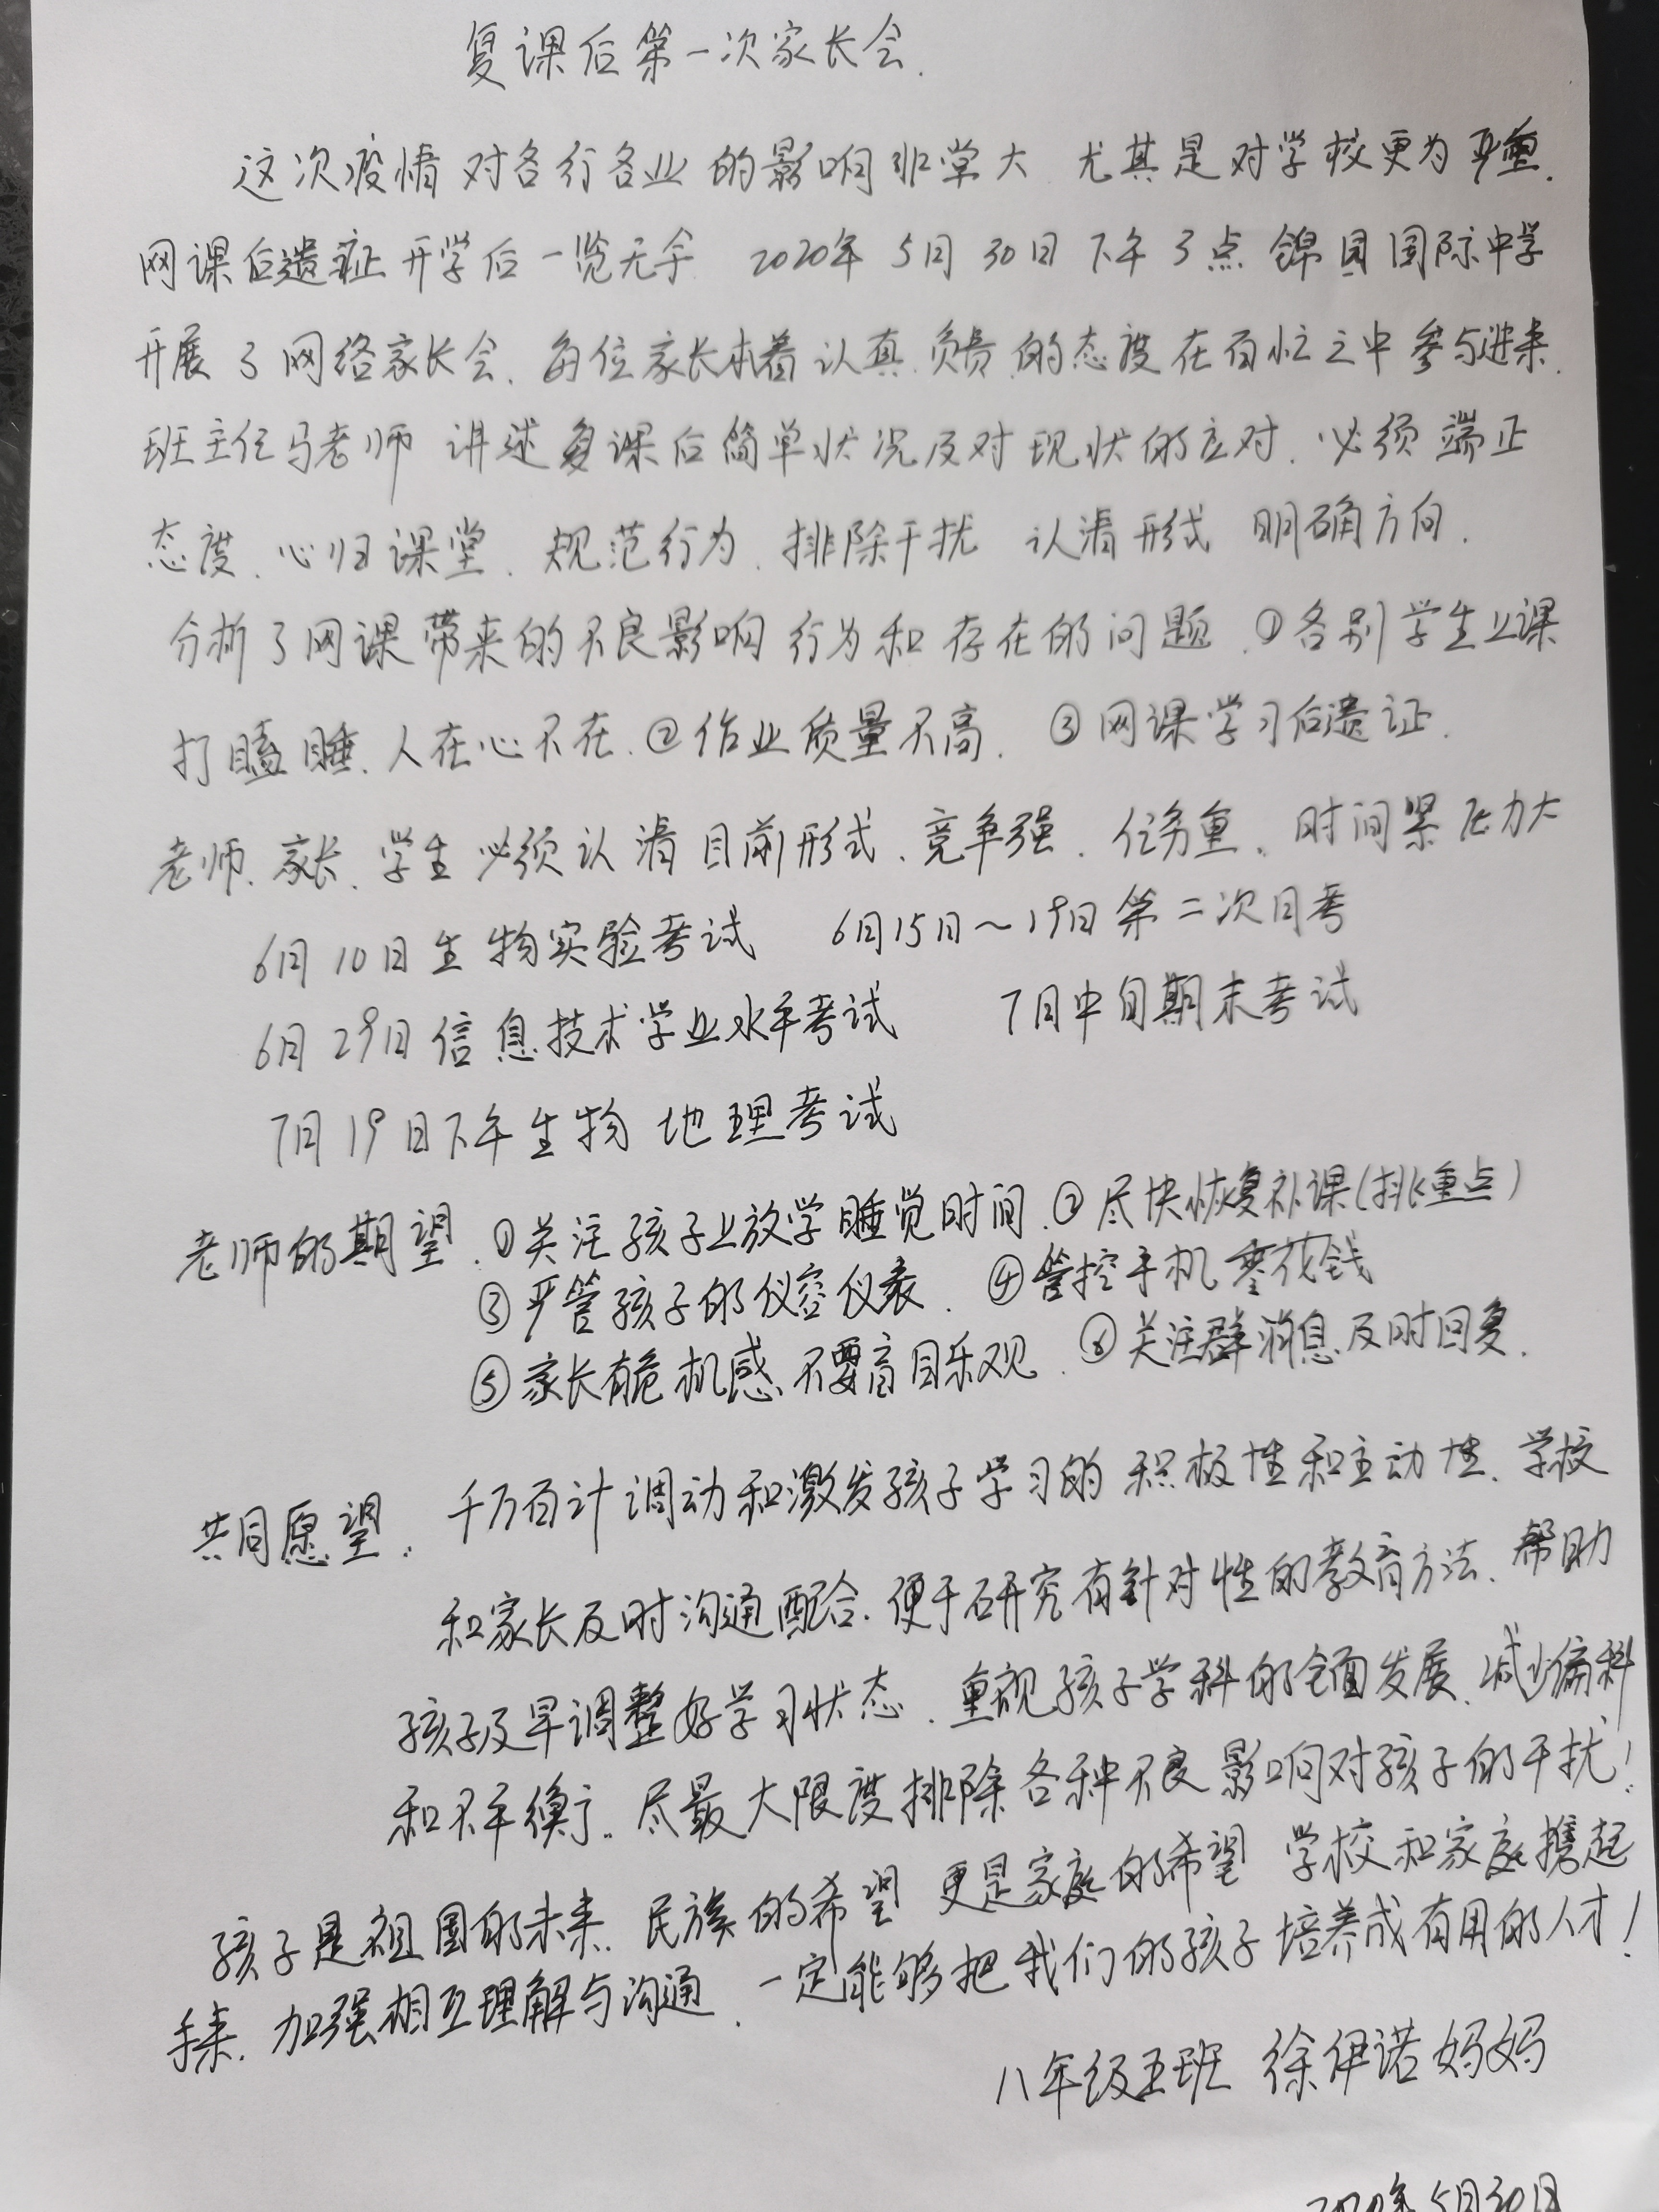 复课后第一次家长会.
这次疫情对各行各业的影响非常大 尤其是对学校更为严重.
网课后遗症开学后一览无余 2020年5月30日下午3点锦园国际中学
开展了网络家长会、每位家长本着认真、负责、的态度在百忙之中参与进来.
班主任马老师 讲述复课后简单状况及对现状的应对、必须端正
态度、心归课堂、规范行为、排除干扰 认清形式 明确方向.
分析了网课带来的不良影响行为和存在的问题、①各别学生上课
打瞌睡、人在心不在.②作业质量不高、③网课学习后遗证.
老师、家长、学生必须认清目前形式、竞争强、任务重、时间紧压力大
6月10日生物实验考试 6月15日~19日第二次月考
6月29日信息技术学业水平考试 7月中旬期末考试
7月19日下午生物 地理考试
老师的期望、①关注孩子上放学睡觉时间.②尽快恢复补课(挑重点)
③严管孩子的仪容仪表、④管控手机零花钱
⑤家长有危机感、不要盲目乐观、⑥关注群消息及时回复.
共同愿望: 千方百计调动和激发孩子学习的积极性和主动性、学校
和家长及时沟通配合.便于研究有针对性的教育方法、帮助
孩子及早调整好学习状态、重视孩子学科的全面发展、减少偏科
和不平衡、尽最大限度排除各种不良影响对孩子的干扰!
孩子是祖国的未来、民族的希望 更是家庭的希望 学校和家庭携起
手来、加强相互理解与沟通、一定能够把我们的孩子培养成有用的人才!
八年级五班 徐伊诺妈妈
2020年5月30日